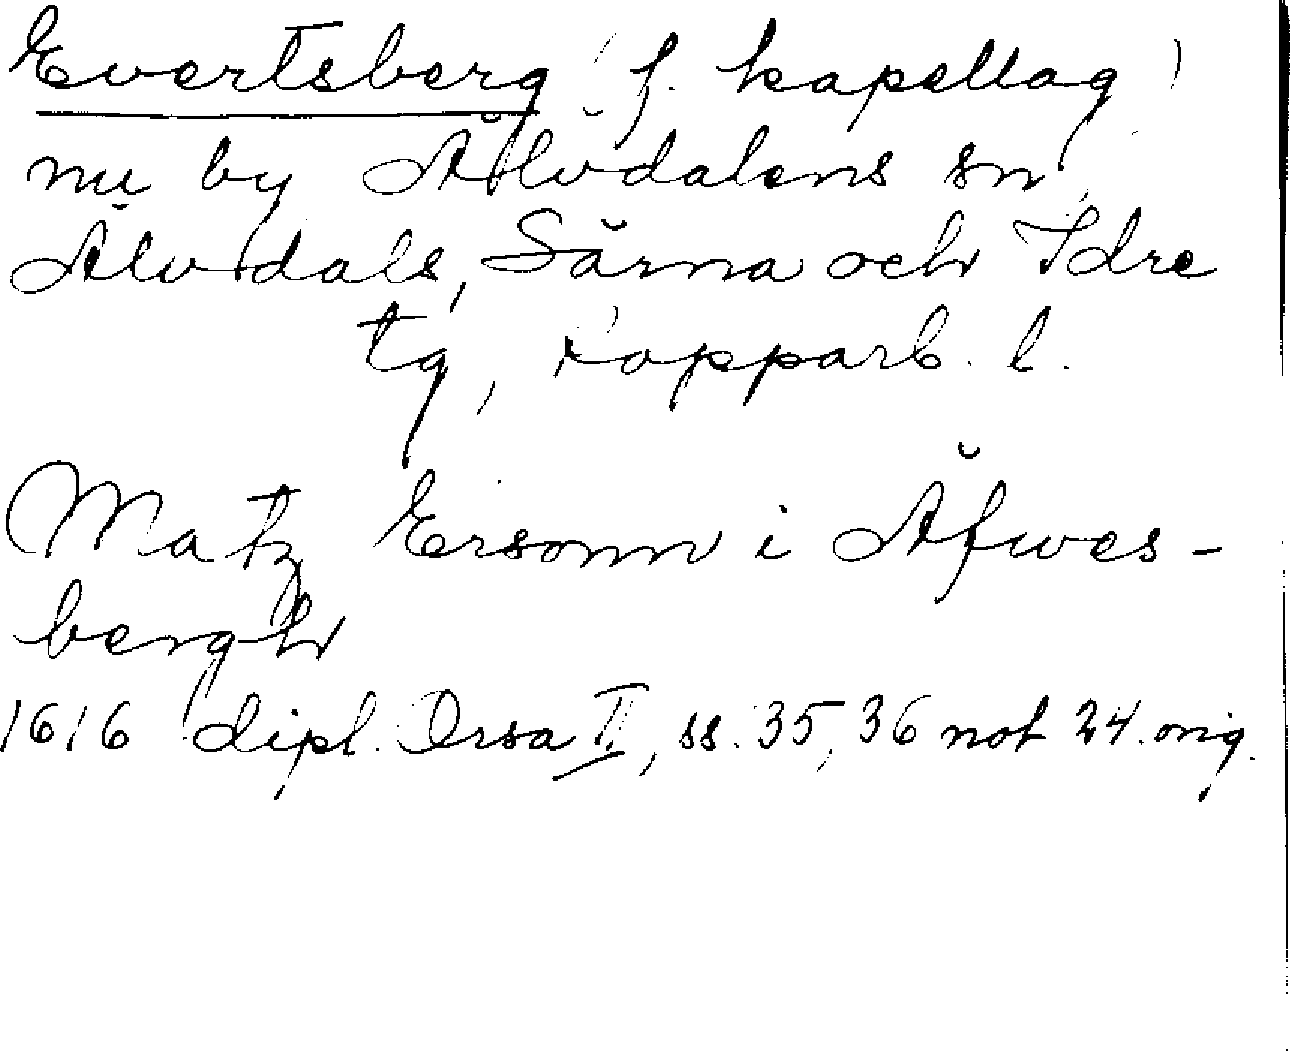 Evertsberg (f. kapellag)
nu by Älvdalens sn,
Älvdals, Särna och Idre
tg, Kopparb. l.
Matz Ersonn i Äfwes-
bergh
1616 dipl. Orsa II, ss. 35, 36 not 24. orig.